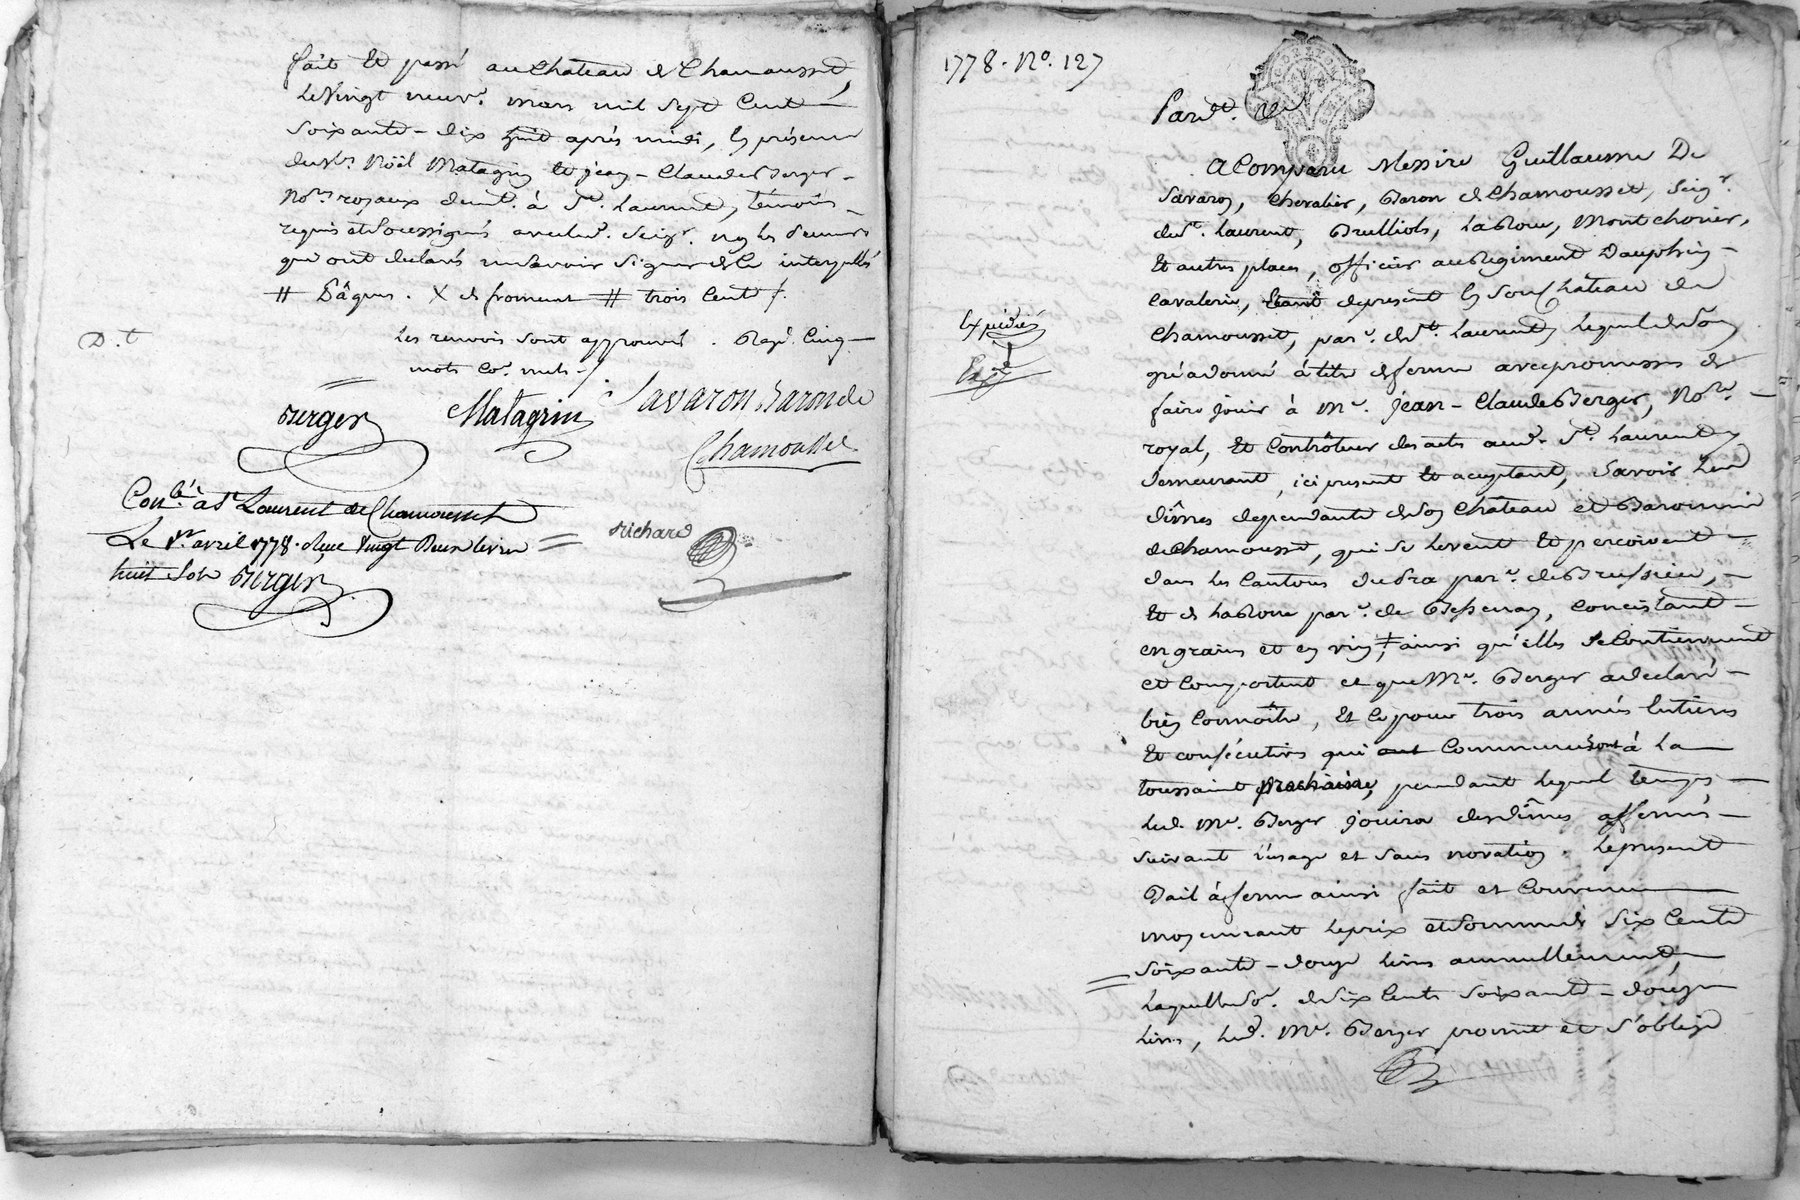 fait et passé au Château de Chamousset,
le Vingt neuf. mars mil sept Cent
soixante-dix huit après midi, En présence
de Mrs. Nöël Matagrin et jean-Claude Berger-
Nores. royaux demt. à St. Laurent, témoins
requis et Soussignés avec led. Seigr.
qui ont declaré Savoir Signer de ce interpellés
# Pâques. X de froment # trois Cent
D.t
Les renvois sont approuvés. Rayé Cinq
mots Co. nuls
Berger Matagrin Savaron Baron de
Chamousset
Conlé. à St Laurent de Chamousset
Le 1er. avril 1778. Reçu Vingt Deux livres
huit Sols Berger
Richard
1778. No. 127
Pardt. &a
A Comparu Messire Guillaume De
Savaron, Chevalier, Baron de Chamousset, Seigr.
de St. Laurent, Brulliols, La Roue, Montchorier,
et autres places, officier au Regiment Dauphin-
Cavalerie, Etant de present En Son Château de
Chamousset, par. de St. Laurent, Lequel de Son
gré a donné à titre de ferme avec promesses de
faire jouir à Me. jean-Claude Berger, Nore.
royal, et Contrôleur des actes aud. St. Laurent y
demeurant, ici present et acceptant, Savoir Les
dîmes dependantes de Son Château et Baronnie
de Chamousset, qui se Levent et perçoivent
dans les Cantons du Pra par. de Brussieu,
et de La Roue par. de Bessenay, Concistant
en grains et en vin, # ainsi qu'elles se Contiennent
et Comportent et que Me. Berger a declaré
bien Connoître, Et Ce pour trois années Entieres
et consécutives qui ont Commenceront à La
toussaint prochaine, pendant lequel temps
led. Me. Berger jouira des dîmes affermés
suivant l'usage et sans novation. Le present
Bail à ferme ainsi fait et Convenu
moyennant le prix et Somme de Six Cent
Soixante-douze livres annuellement,
Laquelle So. de Six Cent soixante-douze
livres, led. Me. Berger promet et s'oblige
Expédié